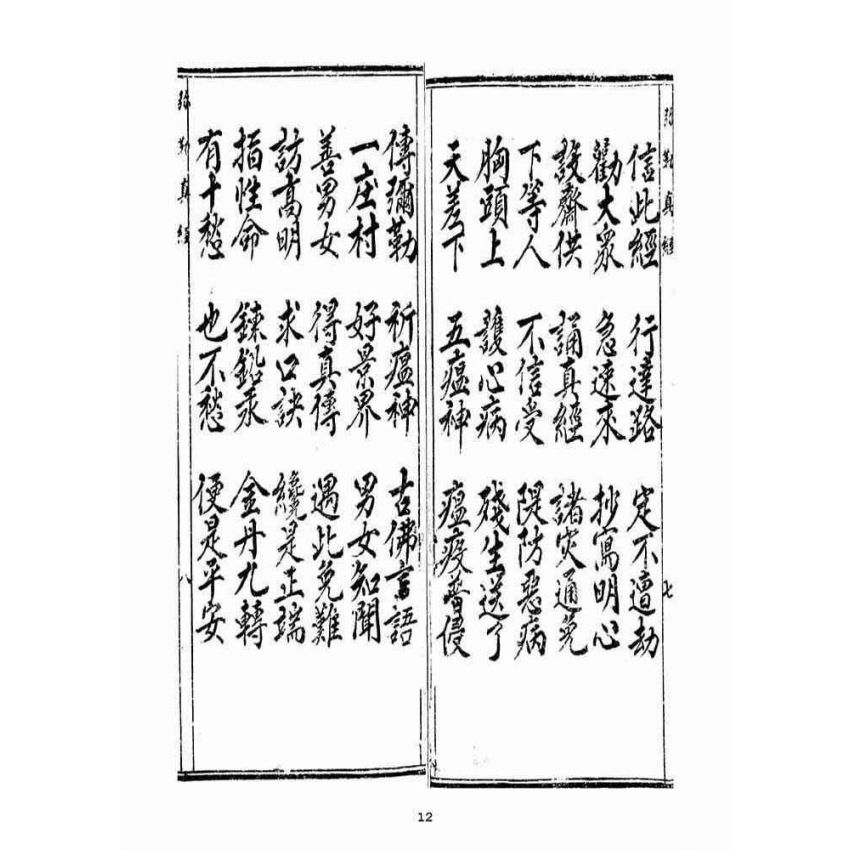 彌勒真經
信此經 行達路 定不遭劫
勸大眾 急速求 抄寫明心
設齋供 誦真經 諸災通免
下等人 不信受 隄防惡病
胸頭上 護心病 殘生送了
天差下 五瘟神 瘟疫普侵
七
傳彌勒 祈瘟神 古佛言語
一座村 好景界 男女知聞
善男女 得真傳 遇此免難
訪高明 求口訣 纔是正端
指性命 鍊鉛汞 金丹九轉
有千愁 也不愁 便是平安
彌勒真經
八
12